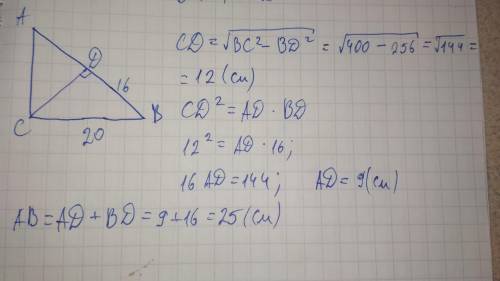 A
D
16
C
B
20
CD = √BC² − BD² = √400 − 256 = √144 =
= 12 (см)
CD² = AD · BD
12² = AD · 16;
16 AD = 144; AD = 9 (см)
AB = AD + BD = 9 + 16 = 25 (см)